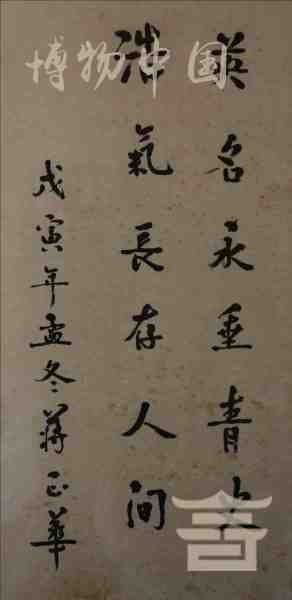 英名永垂青史
浩氣長存人间
戊寅年孟冬蔣正華
博物中国